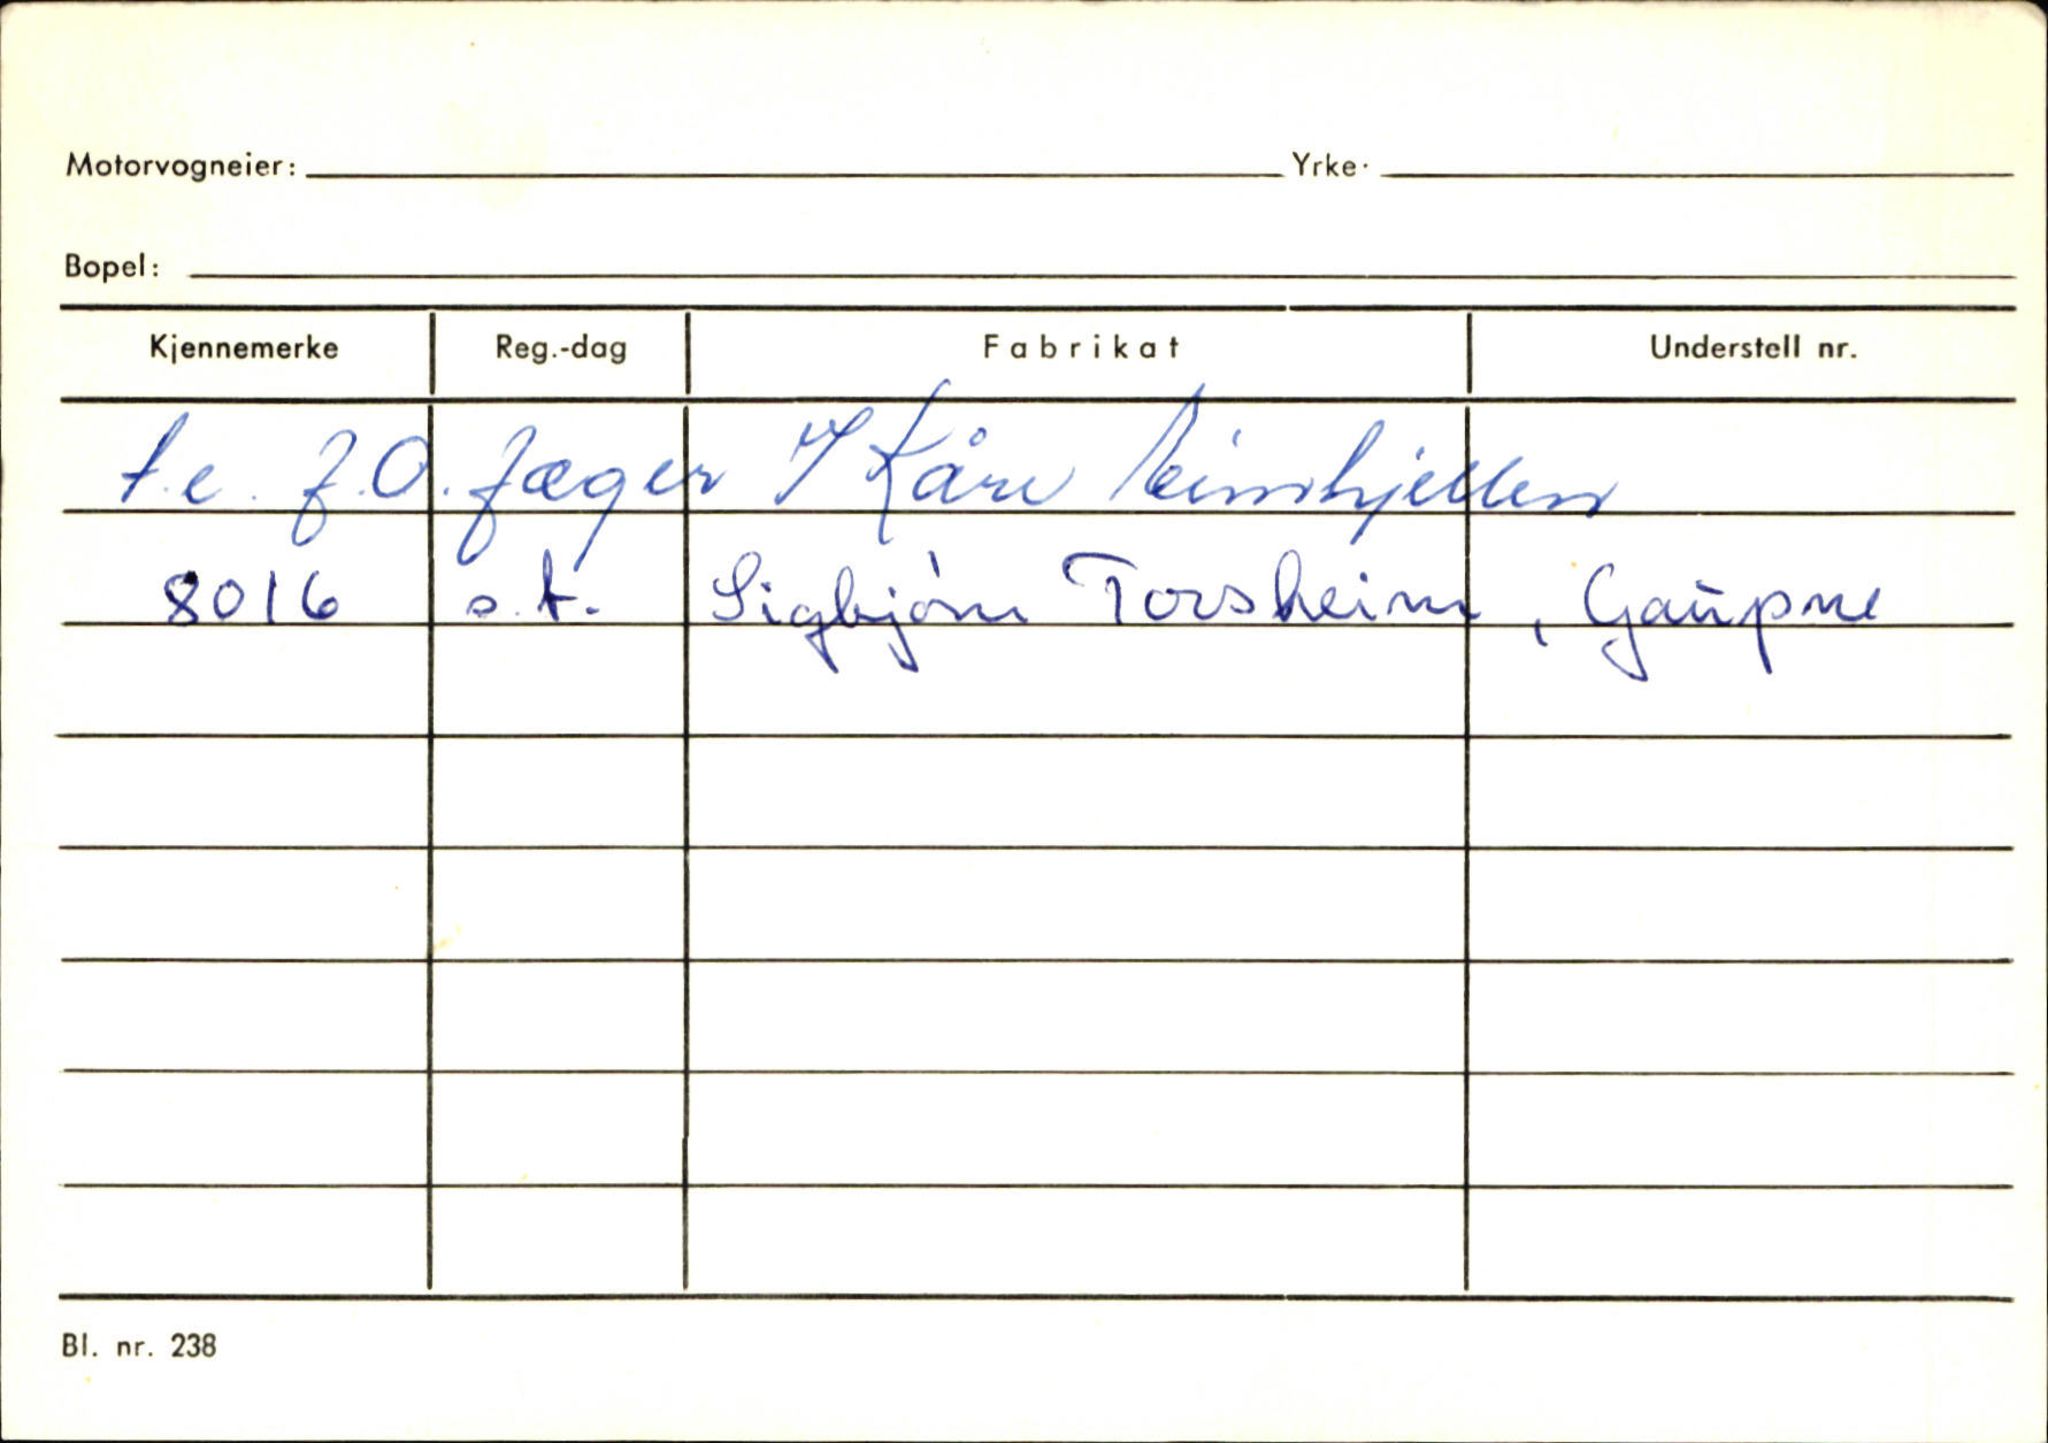 Motorvogneier: Yrke.
Bopel:
Kjennemerke Reg.-dag Fabrikat Understell nr.
t.e. J.O. Jæger / Kåre Eimhjellen
8016 s.t. Sigbjørn Torsheim, Gaupne
Bl. nr. 238